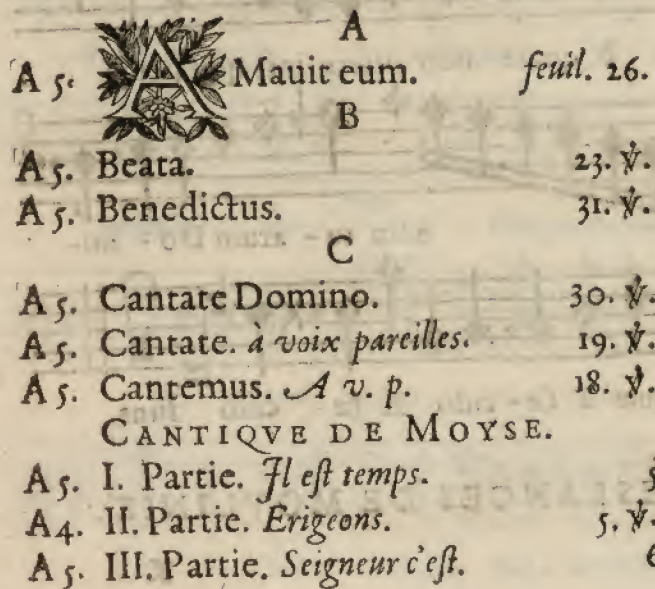 A
A 5. AMavit eum. feuil. 26.
B
A 5. Beata. 23. ℣.
A 5. Benedictus. 31. ℣.
C
A 5. Cantate Domino. 30. ℣.
A 5. Cantate. à voix pareilles. 19. ℣.
A 5. Cantemus. A v. p. 18. ℣.
CANTIQVE DE MOYSE.
A 5. I. Partie. Il eſt temps. 5
A 4. II. Partie. Erigeons. 5. ℣.
A 5. III. Partie. Seigneur c'eſt. 6